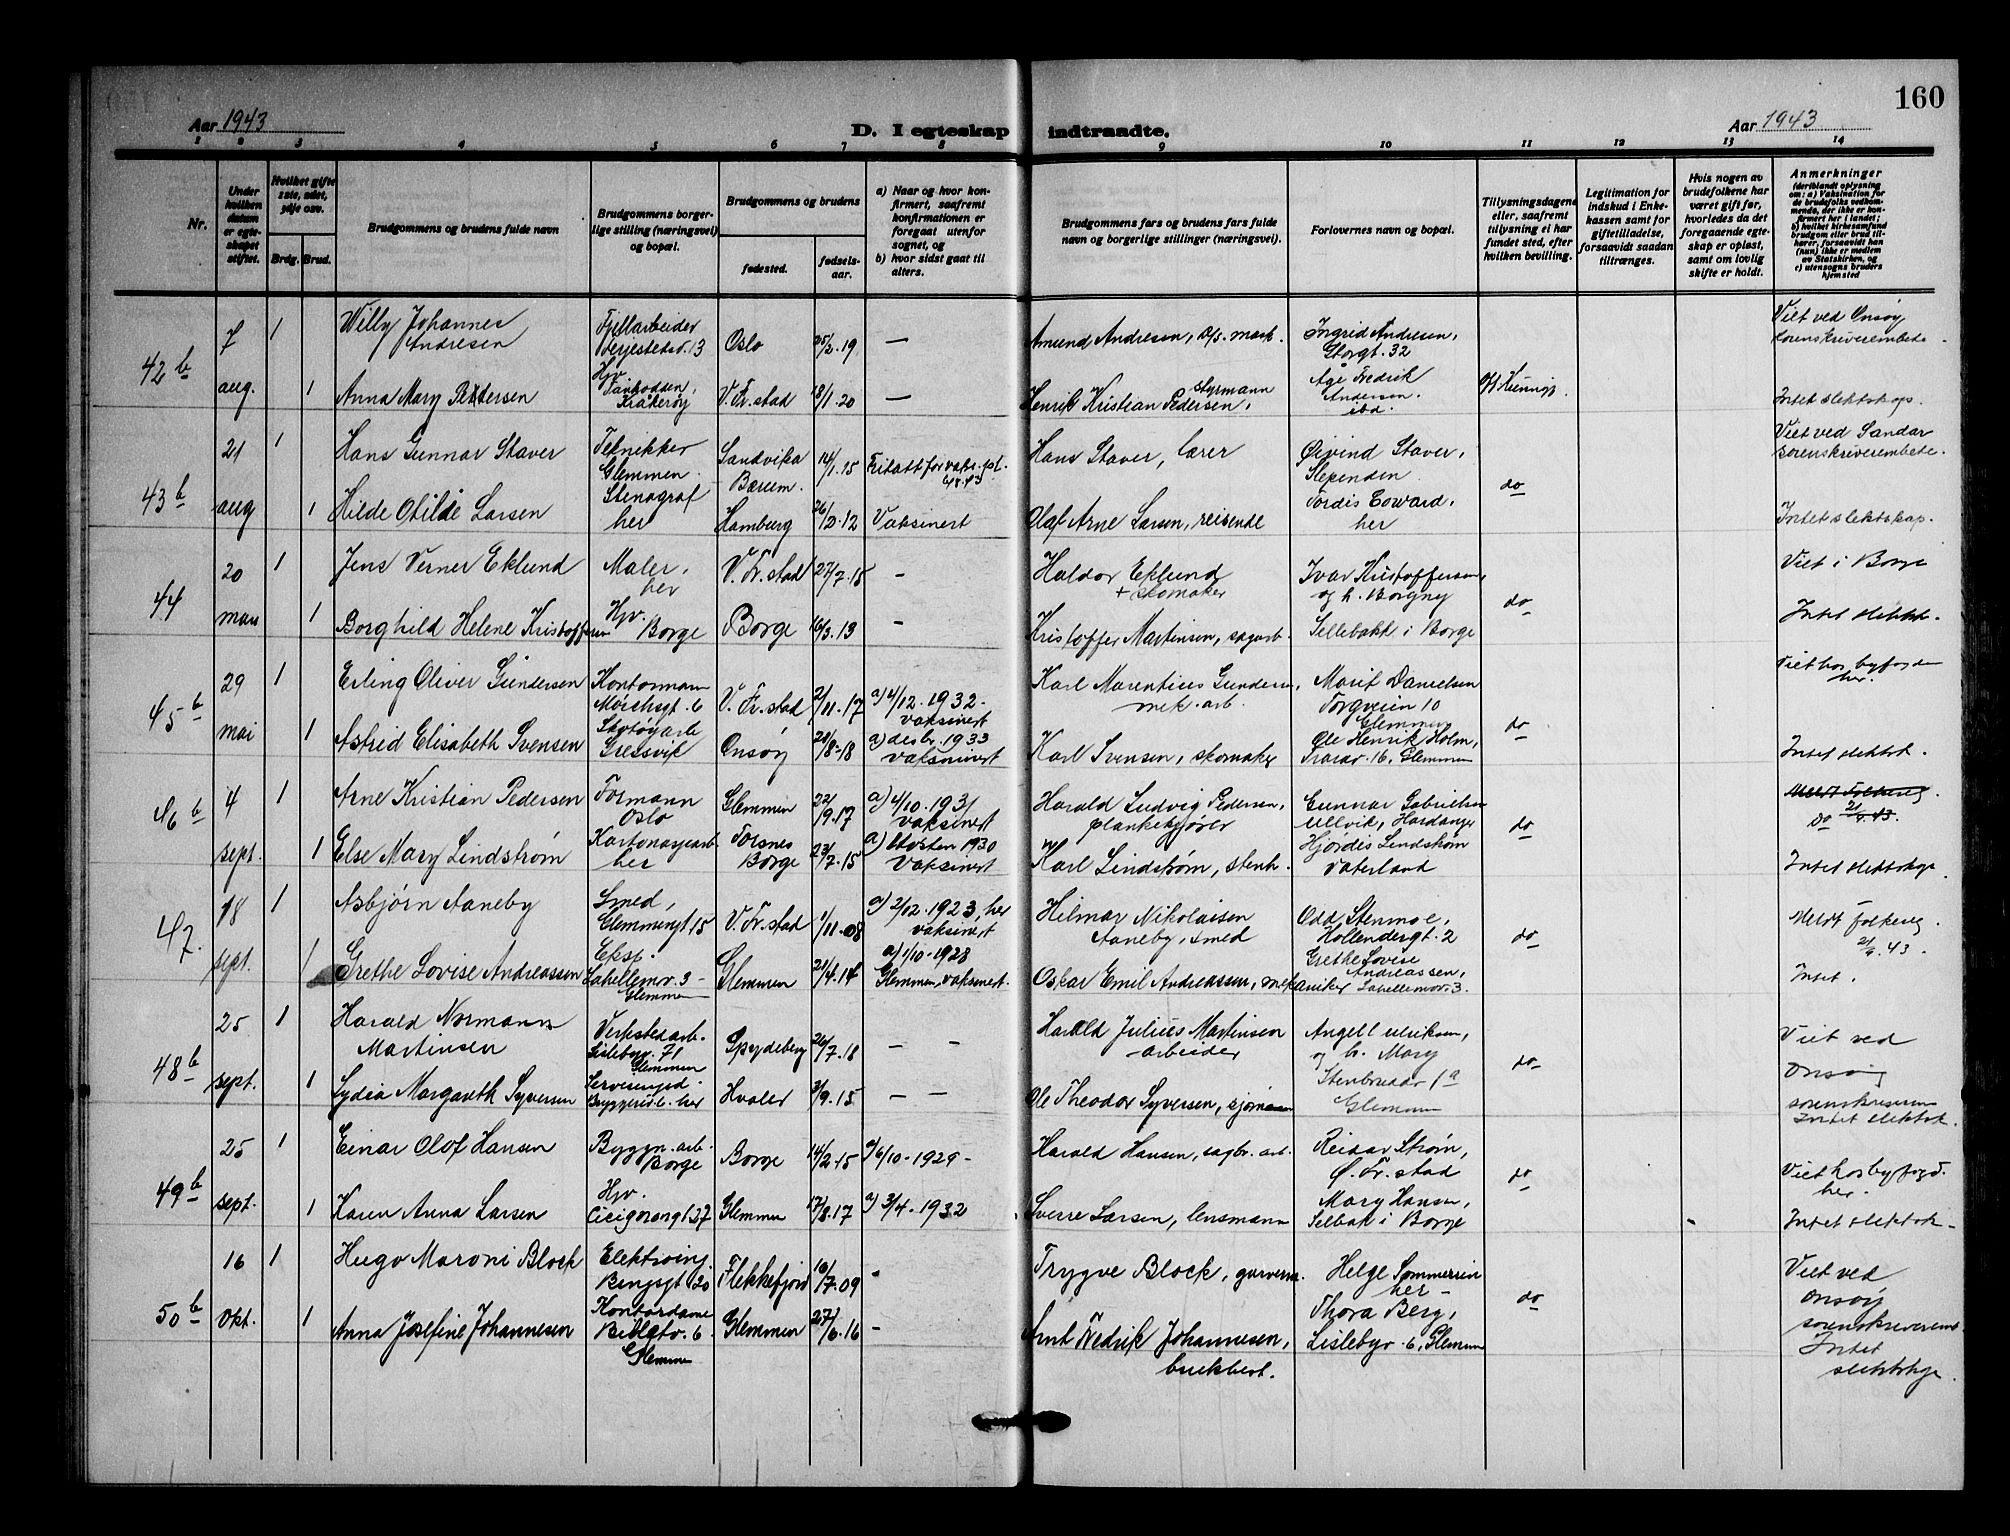 160
Aar 1943
D. I egteskap indtraadte.
Aar 1943
1 2 3 4 5 6 7 8 9 10 11 12 13 14
Nr.
Under hvilken datum er egteskapet stiftet.
Hvilket gifte 1ste, 2det, 3dje osv.
Brdg. Brud.
Brudgommens og brudens fulde navn
Brudgommens borgerlige stilling (næringsvei) og bopæl.
Brudgommens og brudens
fødested.
fødselsaar.
a) Naar og hvor konfirmert, saafremt konfirmationen er foregaat utenfor sognet, og
b) hvor sidst gaat til alters.
Brudgommens fars og brudens fars fulde navn og borgerlige stillinger (næringsvei).
Forlovernes navn og bopæl.
Tillysningsdagene eller, saafremt tillysning ei har fundet sted, efter hvilken bevilling.
Legitimation for indskud i Enkekassen samt for giftetilladelse, forsaavidt saadan tiltrænges.
Hvis nogen av brudefolkene har været gift før, hvorledes da det foregaaende egteskap er opløst, samt om lovlig skifte er holdt.
Anmerkninger
(deriblandt oplysning om: a) Vaksination for de brudefolks vedkommende, der ikke er konfirmert her i landet; b) hvilket kirkesamfund brudgom eller brud tilhører, forsaavidt han (hun) ikke er medlem av Statskirken, og c) utensogns bruders hjemsted
42 b
7 aug.
1
Willy Johannes Andresen
Fjellarbeider
Oslo
25/2.19
—
Amund Andresen,
Ingrid Andresen, Storgt. 32
Viet ved Onsøy sorenskriverembete.
1
Anna Mary Pedersen
Hjv.
Kråkerøy
V. Fr. stad
18/1.20
—
Henrik Kristian Pedersen, styrmann
Åge Fredrik Andersen. ibd.
Intet slektskap.
43 b
21 aug
1
Hans Gunnar Staver
Teknikker Glemmen
Sandvika Bærum.
14/1.15
Fritatt for vaks.
Hans Staver, lærer
Øivind Staver, Slependen
do
Viet ved Sandar sorenskriverembete.
1
Hilde Otilde Larsen
Stenograf her
Hamburg
26/2.12
Vaksinert
Olaf Arne Larsen, reisende
Tordis Edward, her
Intet slektskap.
44
20 mars
1
Jens Verner Eklund
Maler, her
V. Fr. stad
27/7.15
-
Haldor Eklund + skomaker
Ivar Kristoffersen, og h. Borgny
do
Viet i Borge
1
Borghild Helene Kristoffersen
Hjv. Borge
Borge
16/3.13
-
Kristoffer Martinsen, sagarb.
Sellebakk i Borge
Intet slektsk.
45 b
29 mai
1
Erling Oliver Gundersen
Kontormann Mørchsgt. 6
V. Fr. stad
2/11.17
a) 4/12.1932 - vaksinert
Karl Marentius Gundersen, mek. arb.
Marit Danielsen Torgveien 10 Glemmen
do
Viet hos byfogden her.
1
Astrid Elisabeth Svensen
Skotøyarb Gressvik
Onsøy
21/8-18
a) desbr. 1933 vaksinert
Karl Svensen, skomaker
Ole Henrik Holm, Traravn. 16, Glemmen
Intet slektsk.
46 b
4 sept.
1
Arne Kristian Pedersen
Formann Oslo
Glemmen
22/9.17
a) 4/10.1931 vaksinert
Harald Ludvig Pedersen, plankekjører
Gunnar Gabrielsen Ullvik, Hardanger
do
Meldt Folkereg.
Do 21/9.43.
1
Else Mary Lindstrøm
Kartonasjearb her
Torsnes Borge
23/7.15
a) Høsten 1930 Vaksinert
Karl Lindstrøm, stenh.
Hjørdis Lindstrøm Vaterland
Intet slektskap
47.
18 sept.
1
Asbjørn Aaneby
Smed, Glemmengt 15
V. Fr. stad
1/11.08
a) 2/12.1923, her vaksinert
Hilmar Nikolaisen Aaneby, smed
Odd Stenmoe, Hollendergt. 2
do
Meldt folkereg. 21/9.43
1
Grethe Lovise Andreassen
Eksp. Labellemov. 3 - Glemmen
Glemmen
21/4.14
a) 1/10-1928 Glemmen, vaksinert.
Oskar Emil Andreassen, mekaniker
Grethe Lovise Andreassen, Labellemov. 3.
Intet.
48 b
25 sept.
1
Harald Normann Martinsen
Verkstedarb. Lislebyv. 71 Glemmen
Spydeberg
26/7.18
— —
Harald Julius Martinsen arbeider
Angell Eriksen, og h. Mary
do
Viet ved Onsøy sorenskriveren
1
Lydia Margareth Syversen
Bryggeriv. 6. her
Hvaler
3/9.15
— —
Ole Theodor Syversen, sjømann
Stenbruddv 1a Glemmen
Intet slektsk.
49 b
25 sept.
1
Einar Olof Hansen
Byggn. arb. Borge
Borge
14/2.15
a) 6/10-1929 -
Harald Hansen, sagbr. arb.
Reidar Strøm, Ø. Fr. stad
do
Viet hos byfogd. her.
1
Karen Anna Larsen
Hjv. Cicignongt 27
Glemmen
17/8.17
a) 3/4-1932
Sverre Larsen, lensmann
Mary Hansen, Selbak i Borge
Intet slektsk-
50 b
16 okt.
1
Hugo Maroni Block
Elektroing. Bingsgt 20
Flekkefjord
16/7.09
-
Trygve Block, garverm.
Helge Sommersen her -
do
Viet ved Onsøy sorenskriveremb.
1
Anna Josefine Johannesen
Kontordame
Glemmen
Glemmen
27/6.16
-
Arnt Fredrik Johannesen, brukbest.
Thora Berg, Lislebyv. 6, Glemmen
Intet slektskap.